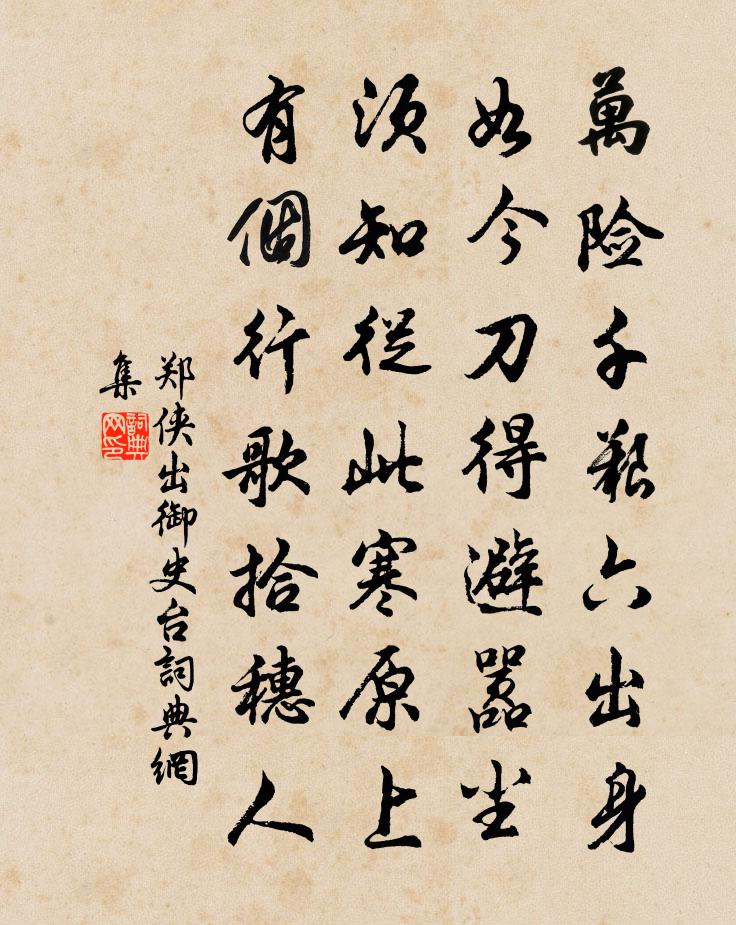 萬险千艱六出身
如今刀得避嚣尘
须知從此寒原上
有個行歌拾穗人
郑侠出御史台詞典網
集
詞典网印